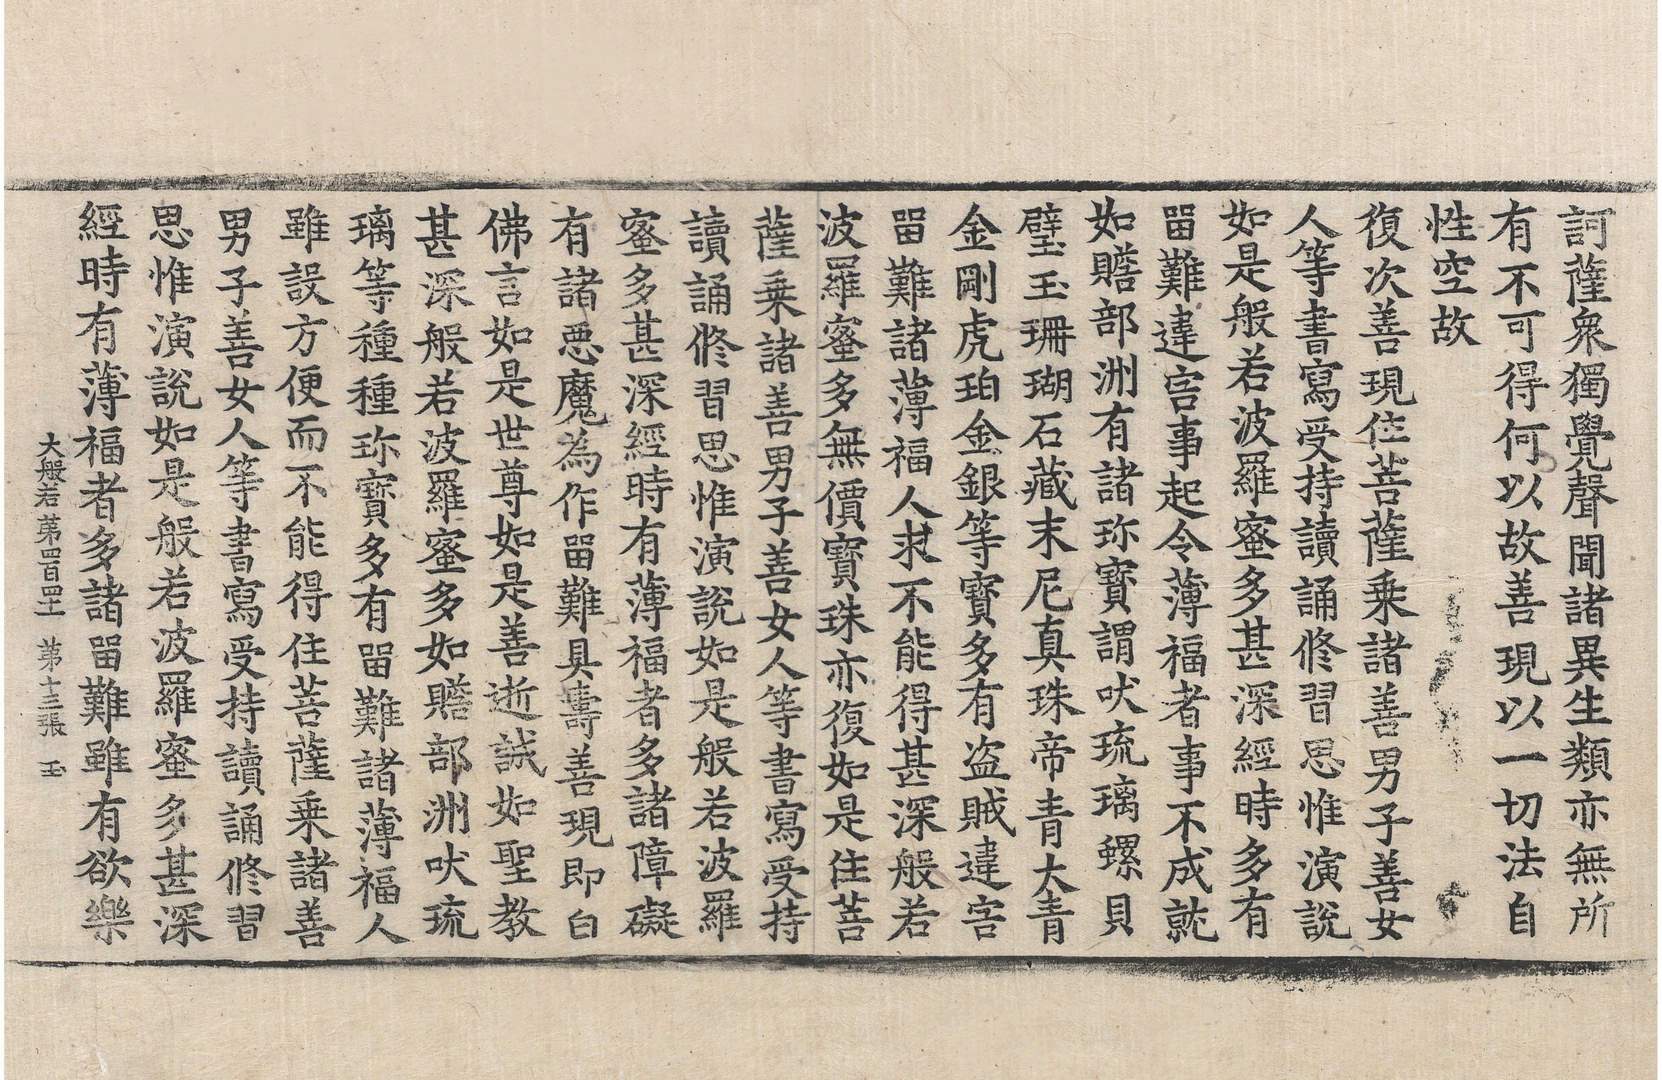 訶薩衆獨覺聲聞諸異生類亦無所
有不可得何以故善現以一切法自
性空故
復次善現住菩薩乗諸善男子善女
人等書寫受持讀誦修習思惟演説
如是般若波羅蜜多甚深經時多有
留難違害事起令薄福者事不成就
如贍部洲有諸珎寶謂吠琉璃螺貝
璧玉珊瑚石藏末尼真珠帝青大青
金剛虎珀金銀等寶多有盗賊違害
留難諸薄福人求不能得甚深般若
波羅蜜多無價寶珠亦復如是住菩
薩乗諸善男子善女人等書寫受持
讀誦修習思惟演説如是般若波羅
蜜多甚深經時有薄福者多諸障礙
有諸悪魔為作留難具壽善現即白
佛言如是世尊如是善逝誠如聖教
甚深般若波羅蜜多如贍部洲吠琉
璃等種種珎寶多有留難諸薄福人
雖設方便而不能得住菩薩乗諸善
男子善女人等書寫受持讀誦修習
思惟演説如是般若波羅蜜多甚深
經時有薄福者多諸留難雖有欲樂
大般若第四百四十 第十三張 玉